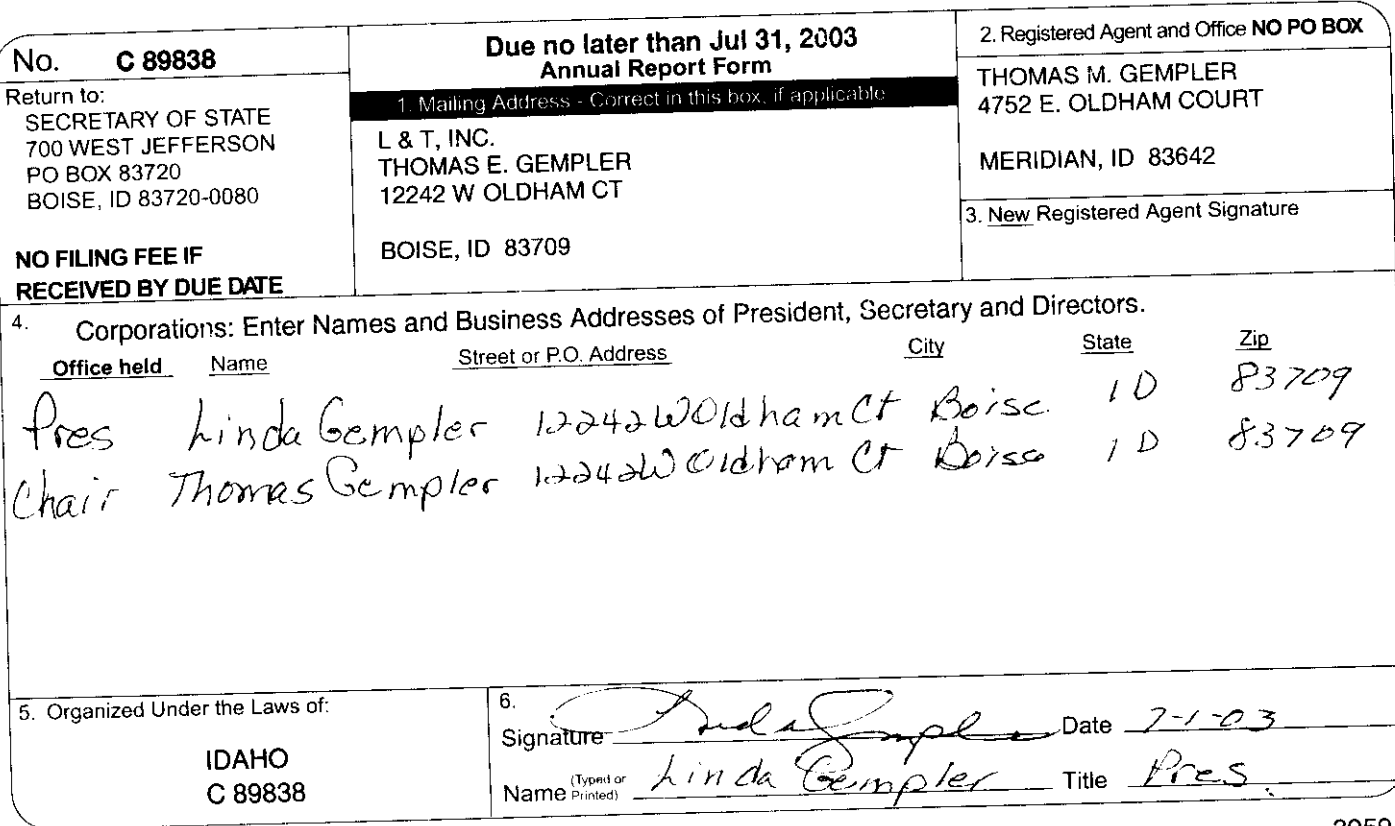 No. C 89838
Return to:
SECRETARY OF STATE
700 WEST JEFFERSON
PO BOX 83720
BOISE, ID 83720-0080
NO FILING FEE IF
RECEIVED BY DUE DATE
Due no later than Jul 31, 2003
Annual Report Form
1. Mailing Address - Correct in this box, if applicable
L & T, INC.
THOMAS E. GEMPLER
12242 W OLDHAM CT
BOISE, ID 83709
2. Registered Agent and Office NO PO BOX
THOMAS M. GEMPLER
4752 E. OLDHAM COURT
MERIDIAN, ID 83642
3. New Registered Agent Signature
4. Corporations: Enter Names and Business Addresses of President, Secretary and Directors.
Office held Name Street or P.O. Address City State Zip
Pres Linda Gempler 12242 W Oldham Ct Boise ID 83709
Chair Thomas Gempler 12242 W Oldham Ct Boise ID 83709
5. Organized Under the Laws of:
IDAHO
C 89838
6.
Signature Linda Gempler Date 7-1-03
Name (Typed or Printed) Linda Gempler Title Pres.